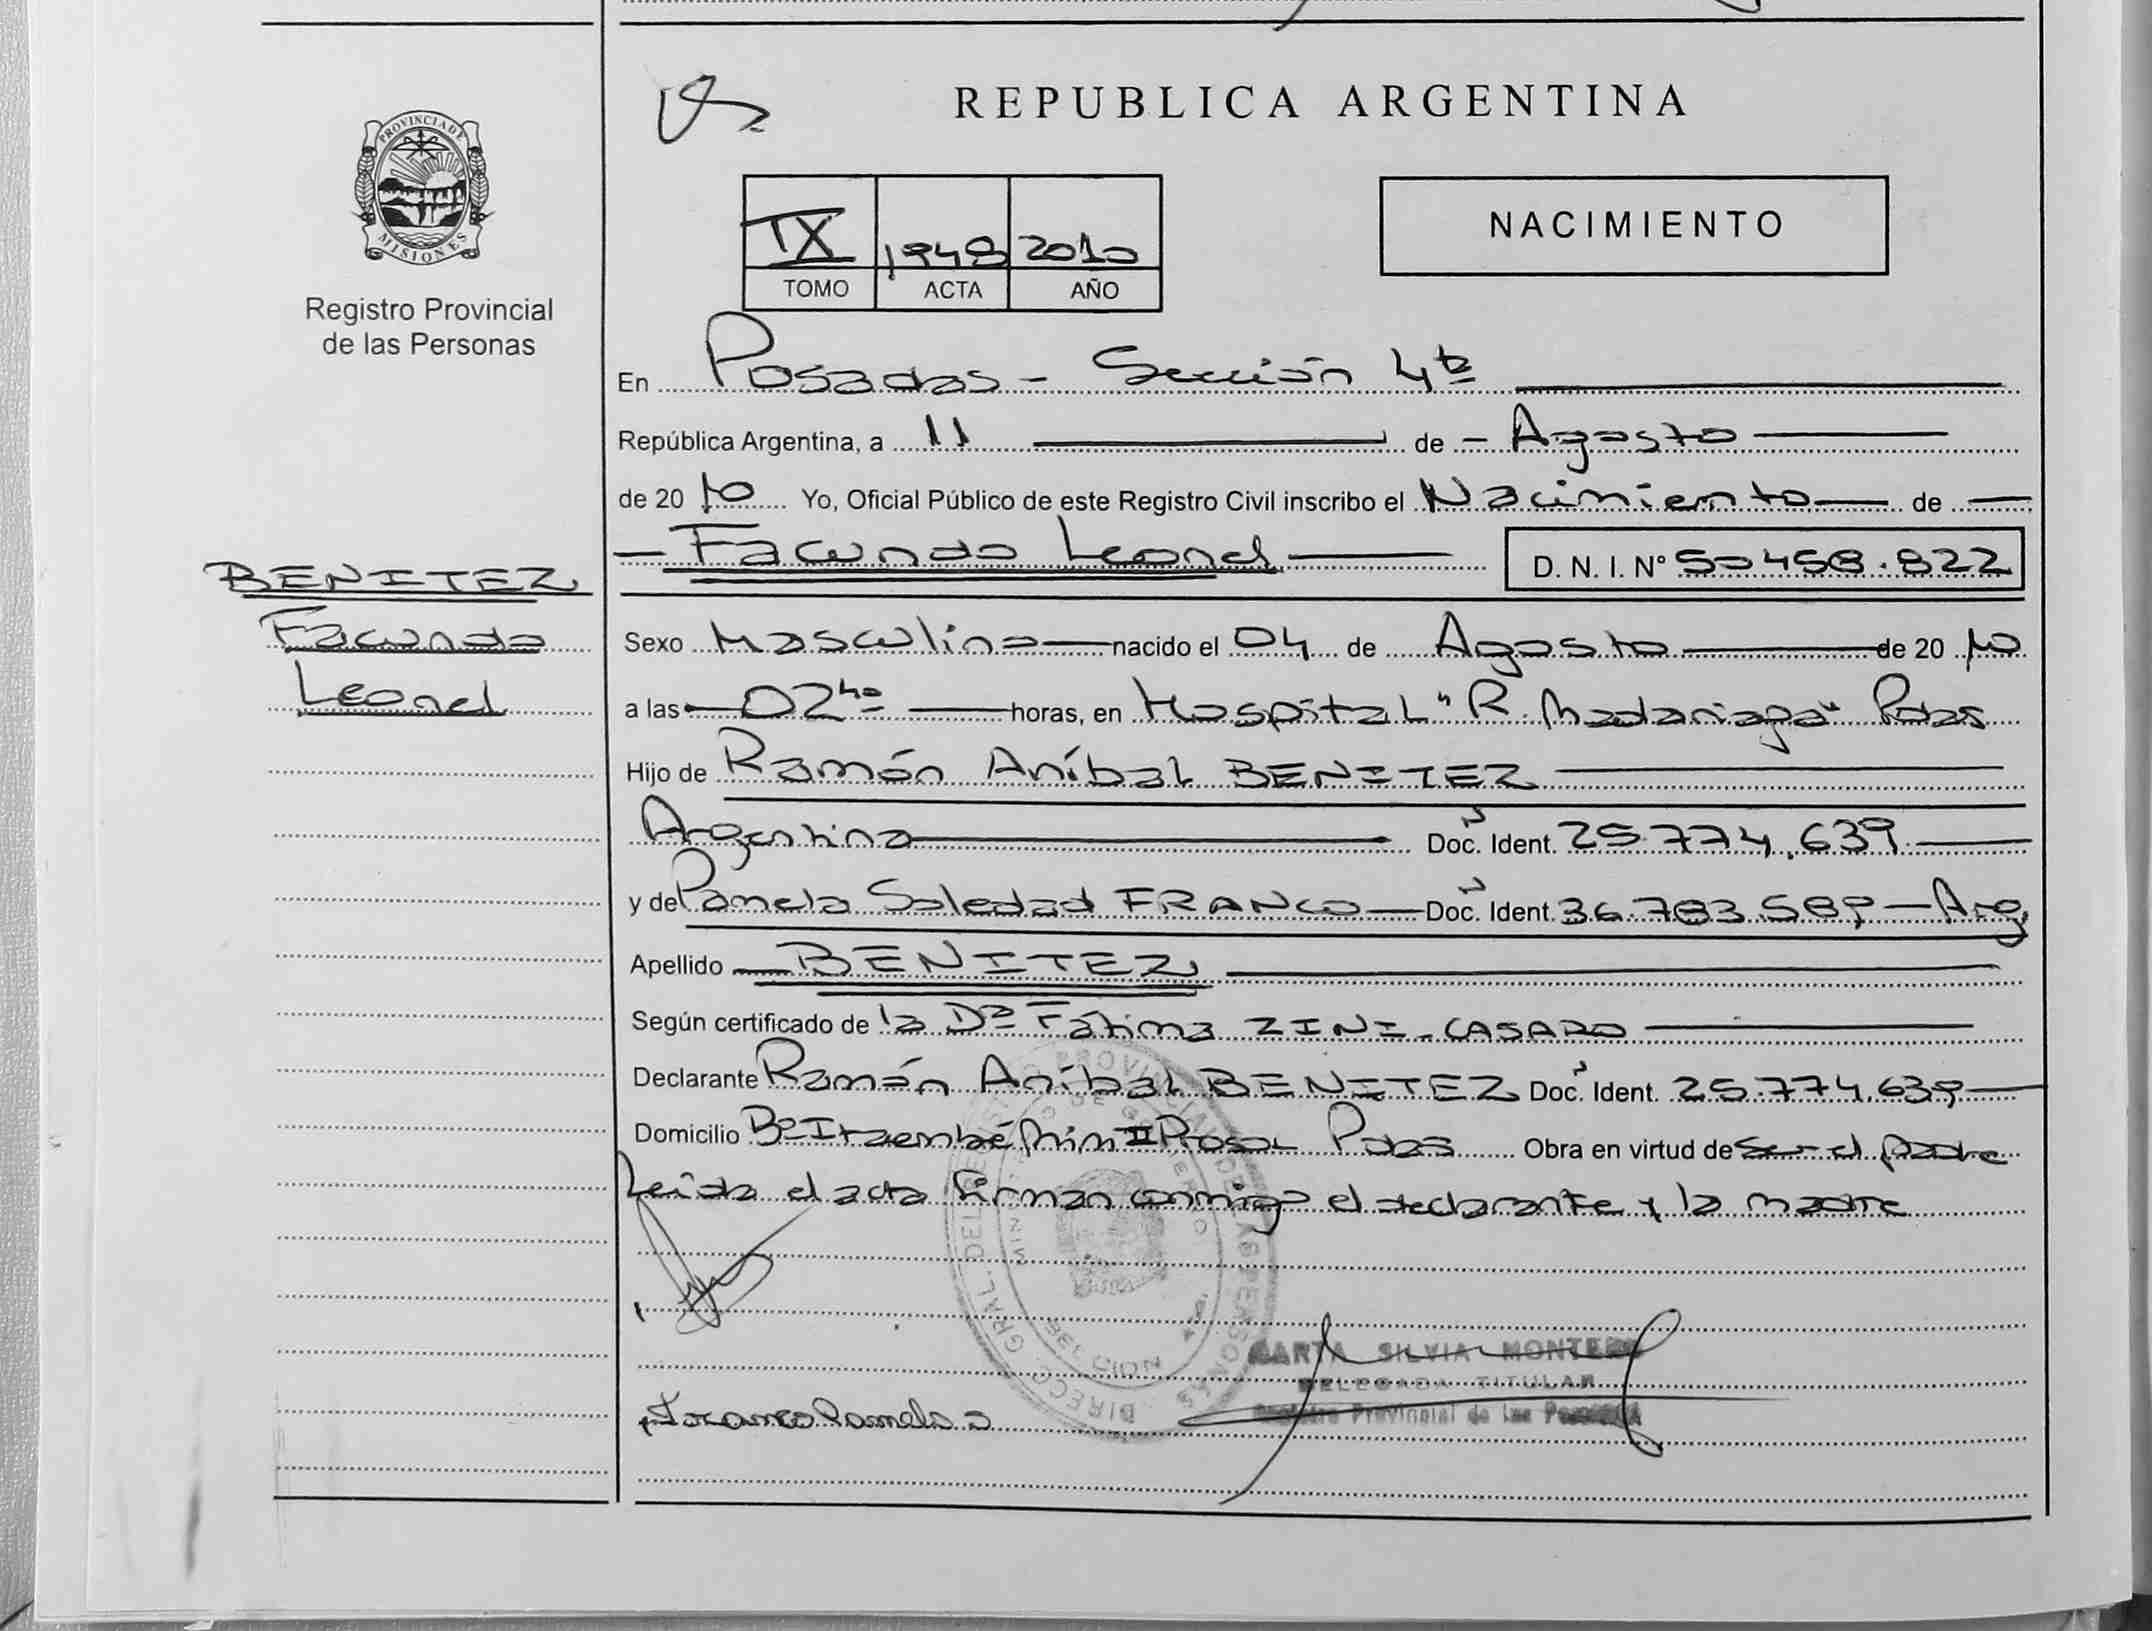 REPUBLICA ARGENTINA
PROVINCIA DE
MISIONES
Registro Provincial
de las Personas
IX 1948 2010
TOMO ACTA AÑO
NACIMIENTO
En Posadas - Sección 4ta
República Argentina, a 11 de - Agosto
de 2010 Yo, Oficial Público de este Registro Civil inscribo el Nacimiento de
Facundo Leonel D. N. I. Nº 50458.822
BENITEZ
Facundo
Leonel
Sexo Masculino nacido el 04 de Agosto de 2010
a las 02 horas, en Hospital "R. Madariaga" Pdas
Hijo de Ramón Aníbal BENITEZ
Argentino Doc. Ident. 25.774.639
y de Pamela Soledad FRANCO Doc. Ident. 36.783.589 - Arg
Apellido BENITEZ
Según certificado de la Dra Fátima ZINI - CASARO
Declarante Ramón Aníbal BENITEZ Doc. Ident. 25.774.639
Domicilio Bº Itaembé Miní II Prosol Pdas Obra en virtud de ser el padre
Leida el acta firman conmigo el declarante y la madre
MARTA SILVIA MONTERO
DELEGADA TITULAR
Registro Provincial de las Personas
Franco Pamela S
DIRECC. GRAL. DEL REGISTRO PROVINCIAL DE LAS PERSONAS